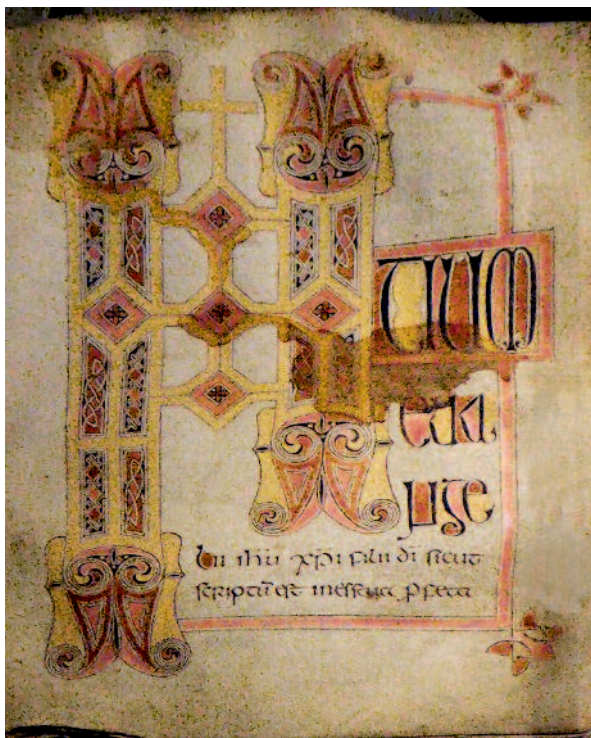 INI
TIUM
eua
nge
lii ihu xpi filii di sicut
scriptū est in essaia ꝓfeta